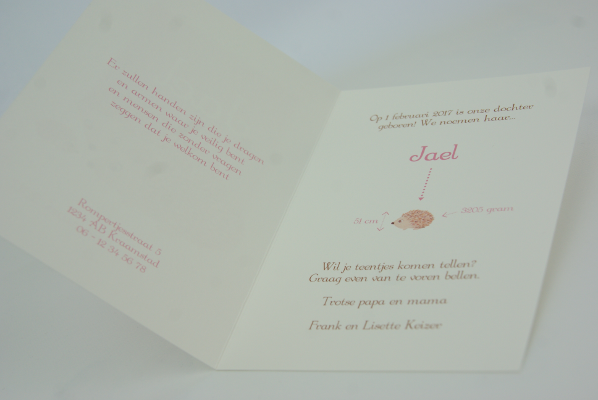 Er zullen handen zijn die je dragen
en armen waar je veilig bent
en mensen die zonder vragen
zeggen dat je welkom bent
Rompertjesstraat 5
1234 AB Kraamstad
06 - 12 34 56 78
Op 1 februari 2017 is onze dochter
geboren! We noemen haar...
Jael
51 cm
3255 gram
Wil je teentjes komen tellen?
Graag even van te voren bellen.
Trotse papa en mama
Frank en Lisette Keizer